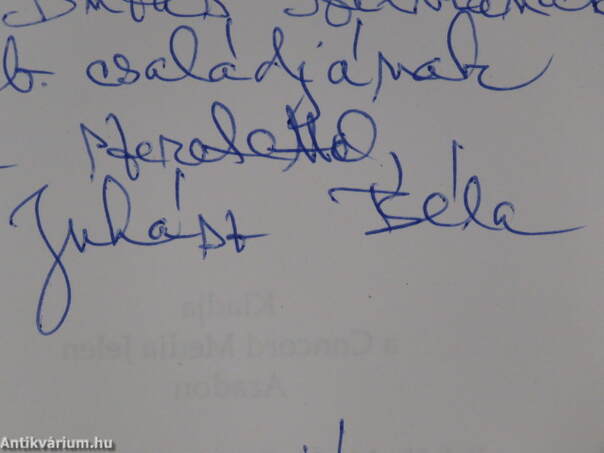 b. családjának
szeretettel
Juhász Béla
Kiadja
a Concord Media Jelen
Aradon
Antikvárium.hu